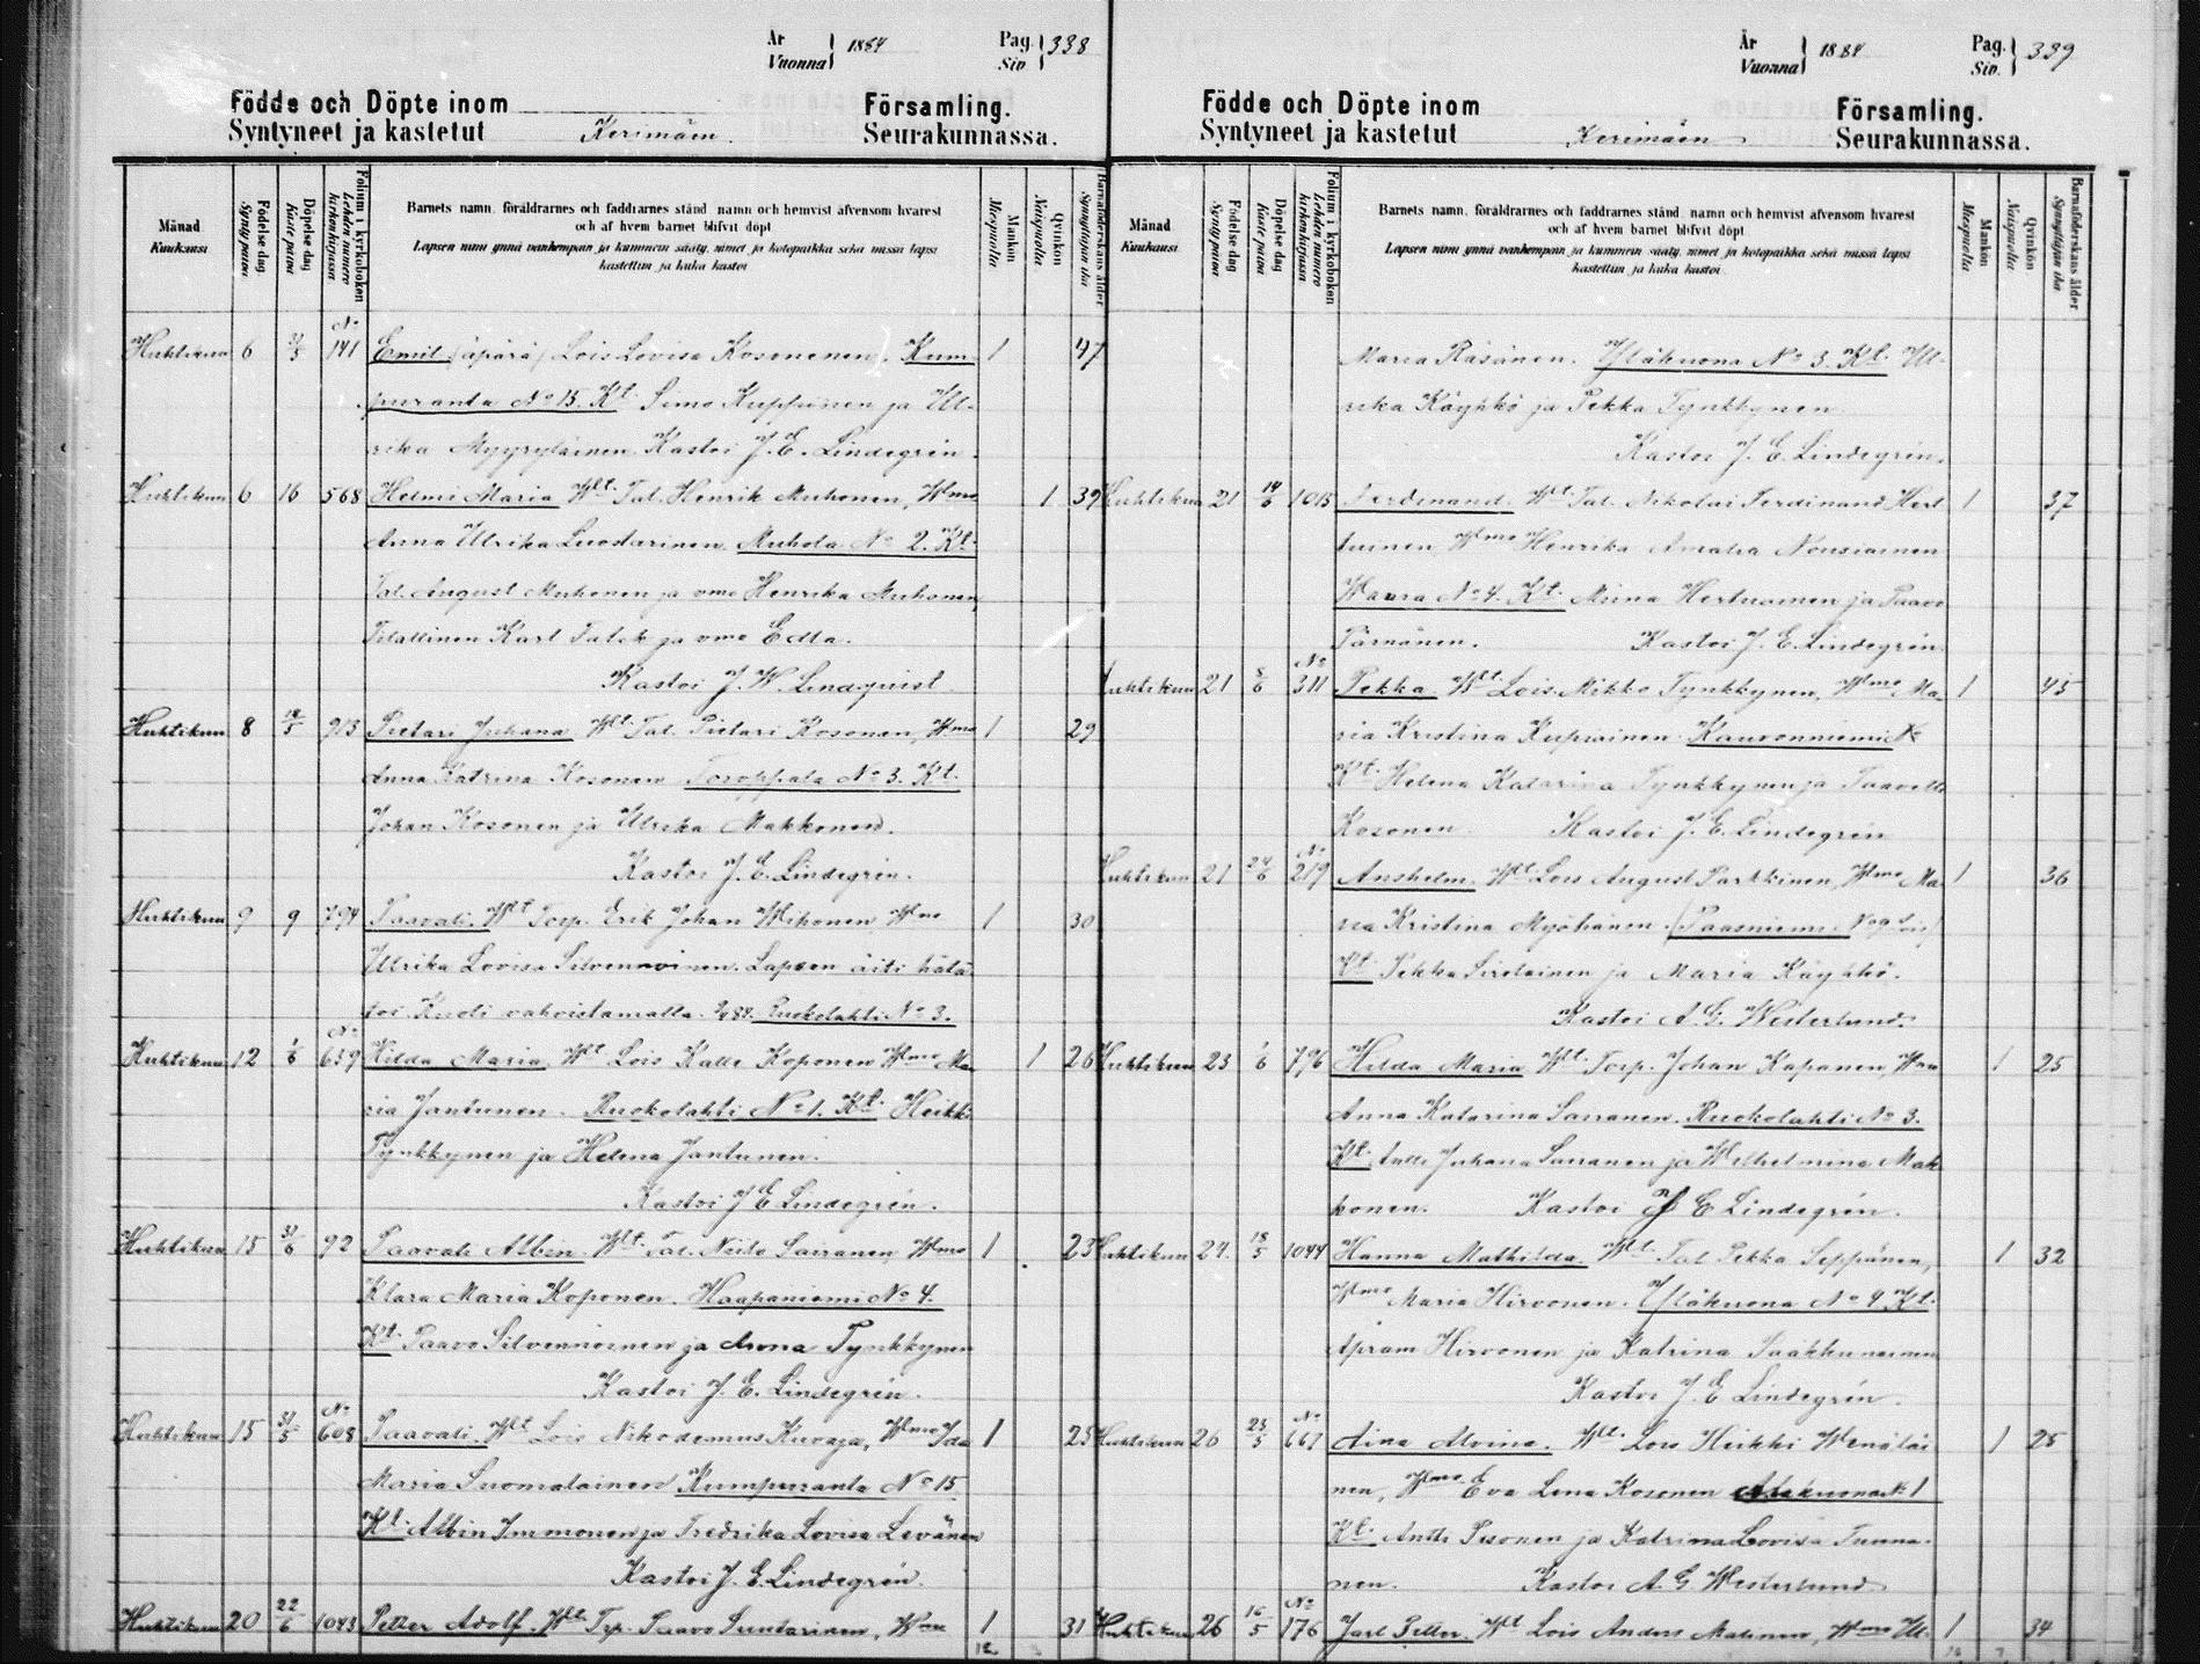 År
Vuonna } 1884 Pag.
Siv. } 338
Födde och Döpte inom Församling.
Syntyneet ja kastetut Kerimäen Seurakunnassa.
Månad
Kuukausi
Födelse dag
Synty paiwa
Döpelse dag
Kaste paiwa
Folium i kyrkoboken
Lehden numero
kirkonkirjassa
Barnets namn, föräldrarnes och faddrarnes stånd, namn och hemvist äfvensom hvarest
och af hvem barnet blifvit döpt
Lapsen nimi ynnä vanhempain ja kummein sääty, nimet ja kotopaikka sekä missä lapsi
kastettiin ja kuka kastoi
Mankön
Miespuolia
Qvinkön
Naispuolia
Barnaföderskans ålder
Synnyttäjän ikä
Huhtikuu 6 31/5 No 141 Emil (äpärä) Lois Lovisa Kosonenen. Kum- 1 47
puranta No 15. Kt. Simo Kuppinen ja Ul-
rika Myyryläinen. Kastoi J. E. Lindegrén.
Huhtikuu 6 16 568 Helmi Maria Wlt. Tal. Henrik Muhonen, Wmo 1 39
Anna Ulrika Luostarinen. Muhola No 2. Kt.
Tal. August Muhonen ja vmo Henrika Muhonen,
Tilallinen Karl Talck ja vmo Edla.
Kastoi J. W. Lindqvist.
Huhtikuu 8 18/5 913 Pietari Juhana Wlt. Tal. Pietari Kosonen, Wmo 1 29
Anna Katrina Kosonen Toroppala No 3. Kt.
Johan Kosonen ja Ulrika Makkonen.
Kastoi J. E. Lindegrén.
Huhtikuu 9 9 794 Taavali. Wlt Torp. Erik Johan Wihonen, Wmo 1 30
Ulrika Lovisa Silvennoinen. Lapsen äiti hätä
toi. Kuoli vahvistamatta. Ruokolahti No 3.
Huhtikuu 12 1/6 No 639 Hilda Maria, Wlt Lois Kalle Koponen Wmo Ma- 1 26
ria Jantunen. Ruokolahti No 1. Kt. Heikki
Tynkkynen ja Helena Jantunen.
Kastoi J E Lindegrén.
Huhtikuu 15 31/6 92 Taavali Albin. Wlt. Tal. Niilo Sairanen, Wmo 1 23
Klara Maria Koponen. Haapaniemi No 4.
Kt. Paavo Silvennoinen ja Anna Tynkkynen
Kastoi J. E. Lindegrén.
Huhtikuu 15 31/5 No 608 Taavali. Wlt Lois Nikodemus Kuvaja, Wmo Ida 1 25
Maria Suomalainen Kumpuranta No 15
Kt. Albin Immonen ja Fredrika Lovisa Levänen
Kastoi J. E. Lindegrén.
Huhtikuu 20 22/6 1043 Petter Adolf. Wlt Paavo Luostarinen, Wmo 1 31
12
År
Vuonna } 1884 Pag.
Siv. } 339
Födde och Döpte inom Församling.
Syntyneet ja kastetut Kerimäen Seurakunnassa.
Månad
Kuukausi
Födelse dag
Synty paiwa
Döpelse dag
Kaste paiwa
Folium i kyrkoboken
Lehden numero
kirkonkirjassa
Barnets namn, föräldrarnes och faddrarnes stånd, namn och hemvist äfvensom hvarest
och af hvem barnet blifvit döpt
Lapsen nimi ynnä vanhempain ja kummein sääty, nimet ja kotopaikka sekä missä lapsi
kastettiin ja kuka kastoi
Mankön
Miespuolia
Qvinkön
Naispuolia
Barnaföderskans ålder
Synnyttäjän ikä
Maria Räsänen. Yläkuona No 3. Kt. Ul-
rika Käyhkö ja Pekka Tynkkynen
Kastoi J. E. Lindegrén.
Huhtikuu 21 14/6 1015 Ferdinand. Wlt. Tal. Nikolai Ferdinand Hert 1 37
tuinen Wmo Henrika Amalia Nousiainen
Waara No 4. Kt. Miina Hertuainen ja Paavo
Pärnänen. Kastoi J. E. Lindegrén.
Huhtikuu 21 8/6 No 311 Pekka Wlt. Lois. Mikko Tynkkynen, Wmo Ma- 1 45
ria Kristina Kupiainen Kauvonniemi No
Kt. Helena Katarina Tynkkynen ja Taavetti
Kosonen. Kastoi J. E. Lindegrén
Huhtikuu 21 24/6 No 219 Anshelm. Wlt Lois August Partkinen, Wmo Ma- 1 36
ria Kristina Myöhänen. (Paasniemi
Kt. Pekka Siroläinen ja Maria Käyhkö.
Kastoi A. G. Westerlund.
Huhtikuu 23 1/6 796 Hilda Maria Wlt. Torp. Johan Kapanen, Wmo 1 25
Anna Katarina Sairanen. Ruokolahti No 3.
Kt. Antti Juhana Sairanen ja Wilhelmina Mak
konen. Kastoi J E Lindegrén.
Huhtikuu 24 18/5 1044 Hanna Mathilda. Wlt. Tal Pekka Seppänen, 1 32
Wmo Maria Hirvonen. Yläkuona No 9 Kt.
Apram Hirvonen ja Katrina Saakkunainen
Kastoi J. E Lindegrén.
Huhtikuu 26 25/5 No 661 Aina Alvina. Wlt. Lois Heikki Wenäläi 1 25
nen, Wmo Eva Lena Kosonen Alakuona No 1
Kt. Antti Pesonen ja Katrina Lovisa Tunna-
nen. Kastoi A. G Westerlund
Huhtikuu 26 16/5 No 176 Jarl Petter. Wlt Lois Anders Malinen, Wmo Ul- 1 34